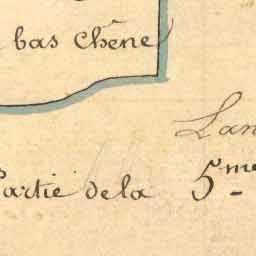 bas Chêne
Lan
Partie de la 5.me